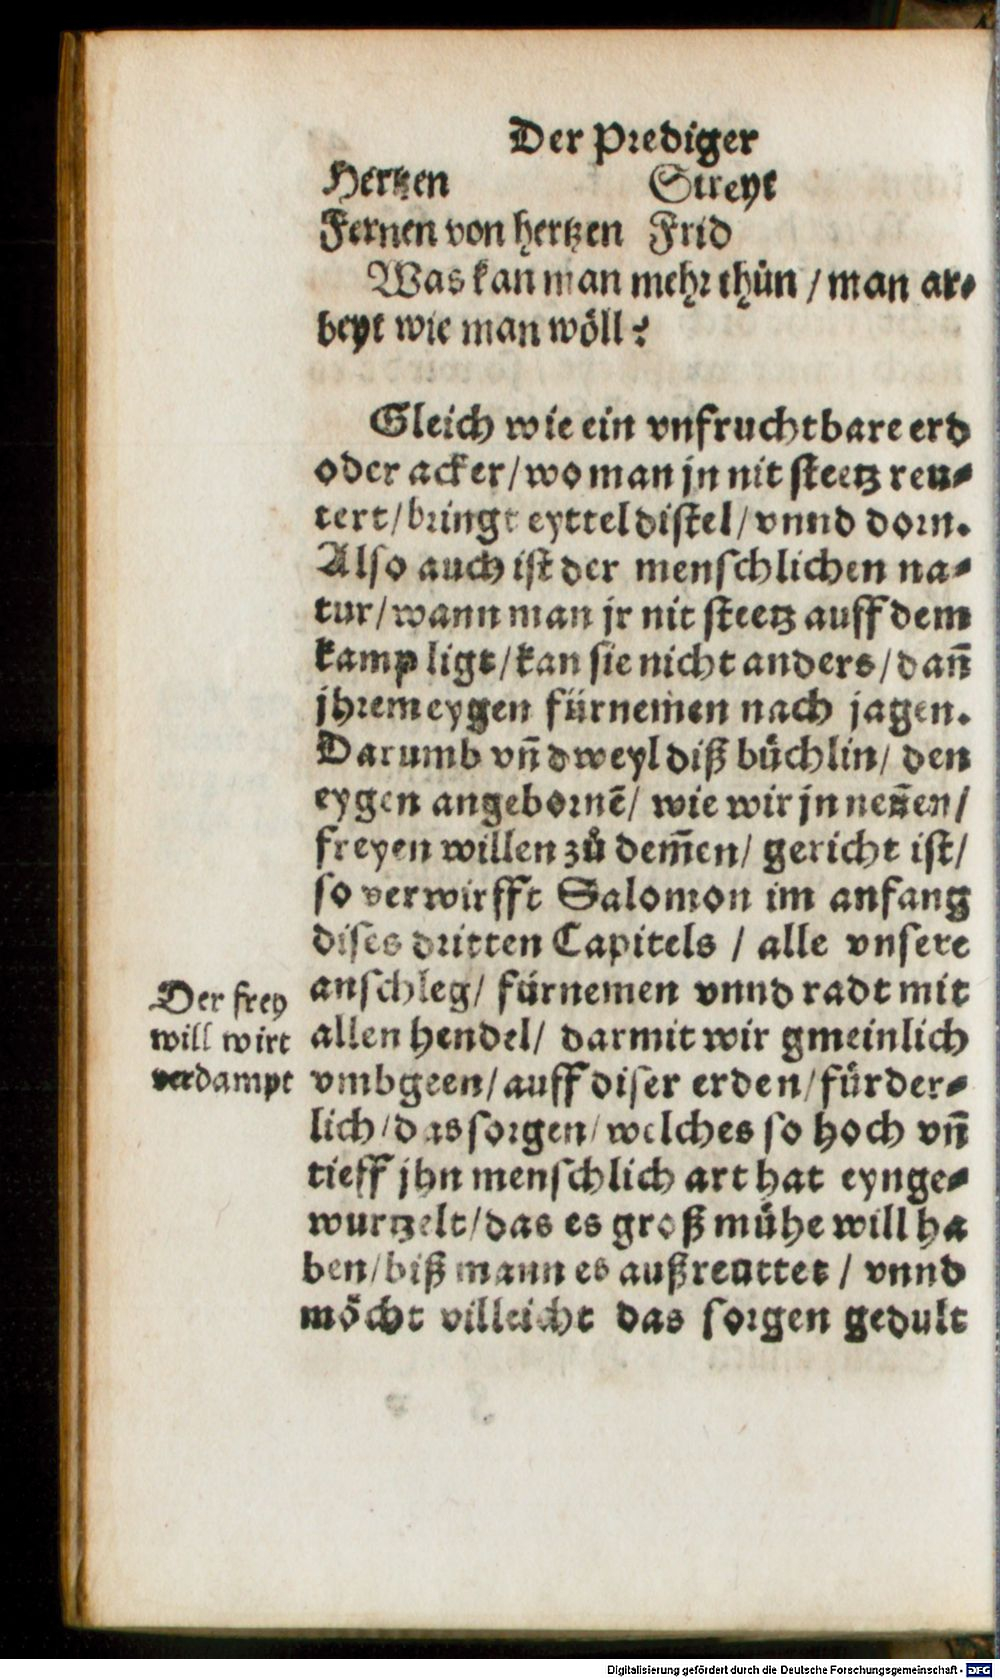 Der Prediger
Hertzen Streyt
Fernen von hertzen Frid
Was kan man mehr thůn / man ar⸗
beyt wie man wöll?
Gleich wie ein vnfruchtbare erd
oder acker / wo man jn nit steetz reu⸗
tert / bringt eyttel distel / vnnd dorn.
Also auch ist der menschlichen na⸗
tur / wann man jr nit steetz auff dem
kamp ligt / kan sie nicht anders / dañ
jhrem eygen fürnemen nach jagen.
Darumb vñ dweyl diß bůchlin / den
eygen angebornẽ / wie wir jn neñen /
freyen willen zů dem̃en / gericht ist /
so verwirfft Salomon im anfang
dises dritten Capitels / alle vnsere
Der frey
will wirt
verdampt
anschleg / fürnemen vnnd radt mit
allen hendel / darmit wir gmeinlich
vmbgeen / auff diser erden / fürder⸗
lich / das sorgen / welches so hoch vñ
tieff jhn menschlich art hat eynge⸗
wurtzelt / das es groß mühe will ha
ben / biß mann es außreuttet / vnnd
möcht villeicht das sorgen gedult
Digitalisierung gefördert durch die Deutsche Forschungsgemeinschaft - DFG